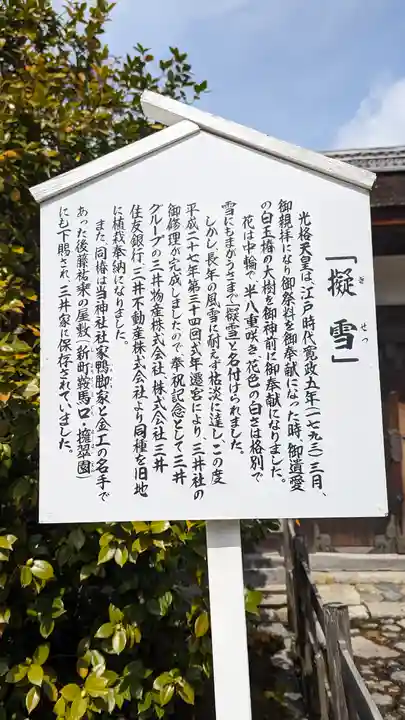 「擬雪」
ぎ せつ
光格天皇は、江戸時代（寛政五年（一七九三）三月、
御親拝になり御祭料を御奉献になった時、御遺愛
の白玉椿の大樹を御神前に御奉献になりました。
花は中輪で、半八重咲き、花色の白さは格別で
雪にもまがうさまで「擬雪」と名付けられました。
しかし、長年の風雪に耐えず枯淡に達し、この度
平成二十七年第三十四回式年遷宮により、三井社の
御修理が完成しましたので、奉祝記念として三井
グループの三井物産株式会社、株式会社三井
住友銀行、三井不動産株式会社より同種を旧地
に植栽奉納になりました。
また、同椿は当神社社家鴨脚家と金工の名手で
あった後藤祐乗の屋敷（新町鞍馬口・擁翠園）
にも下賜され、三井家に保存されていました。